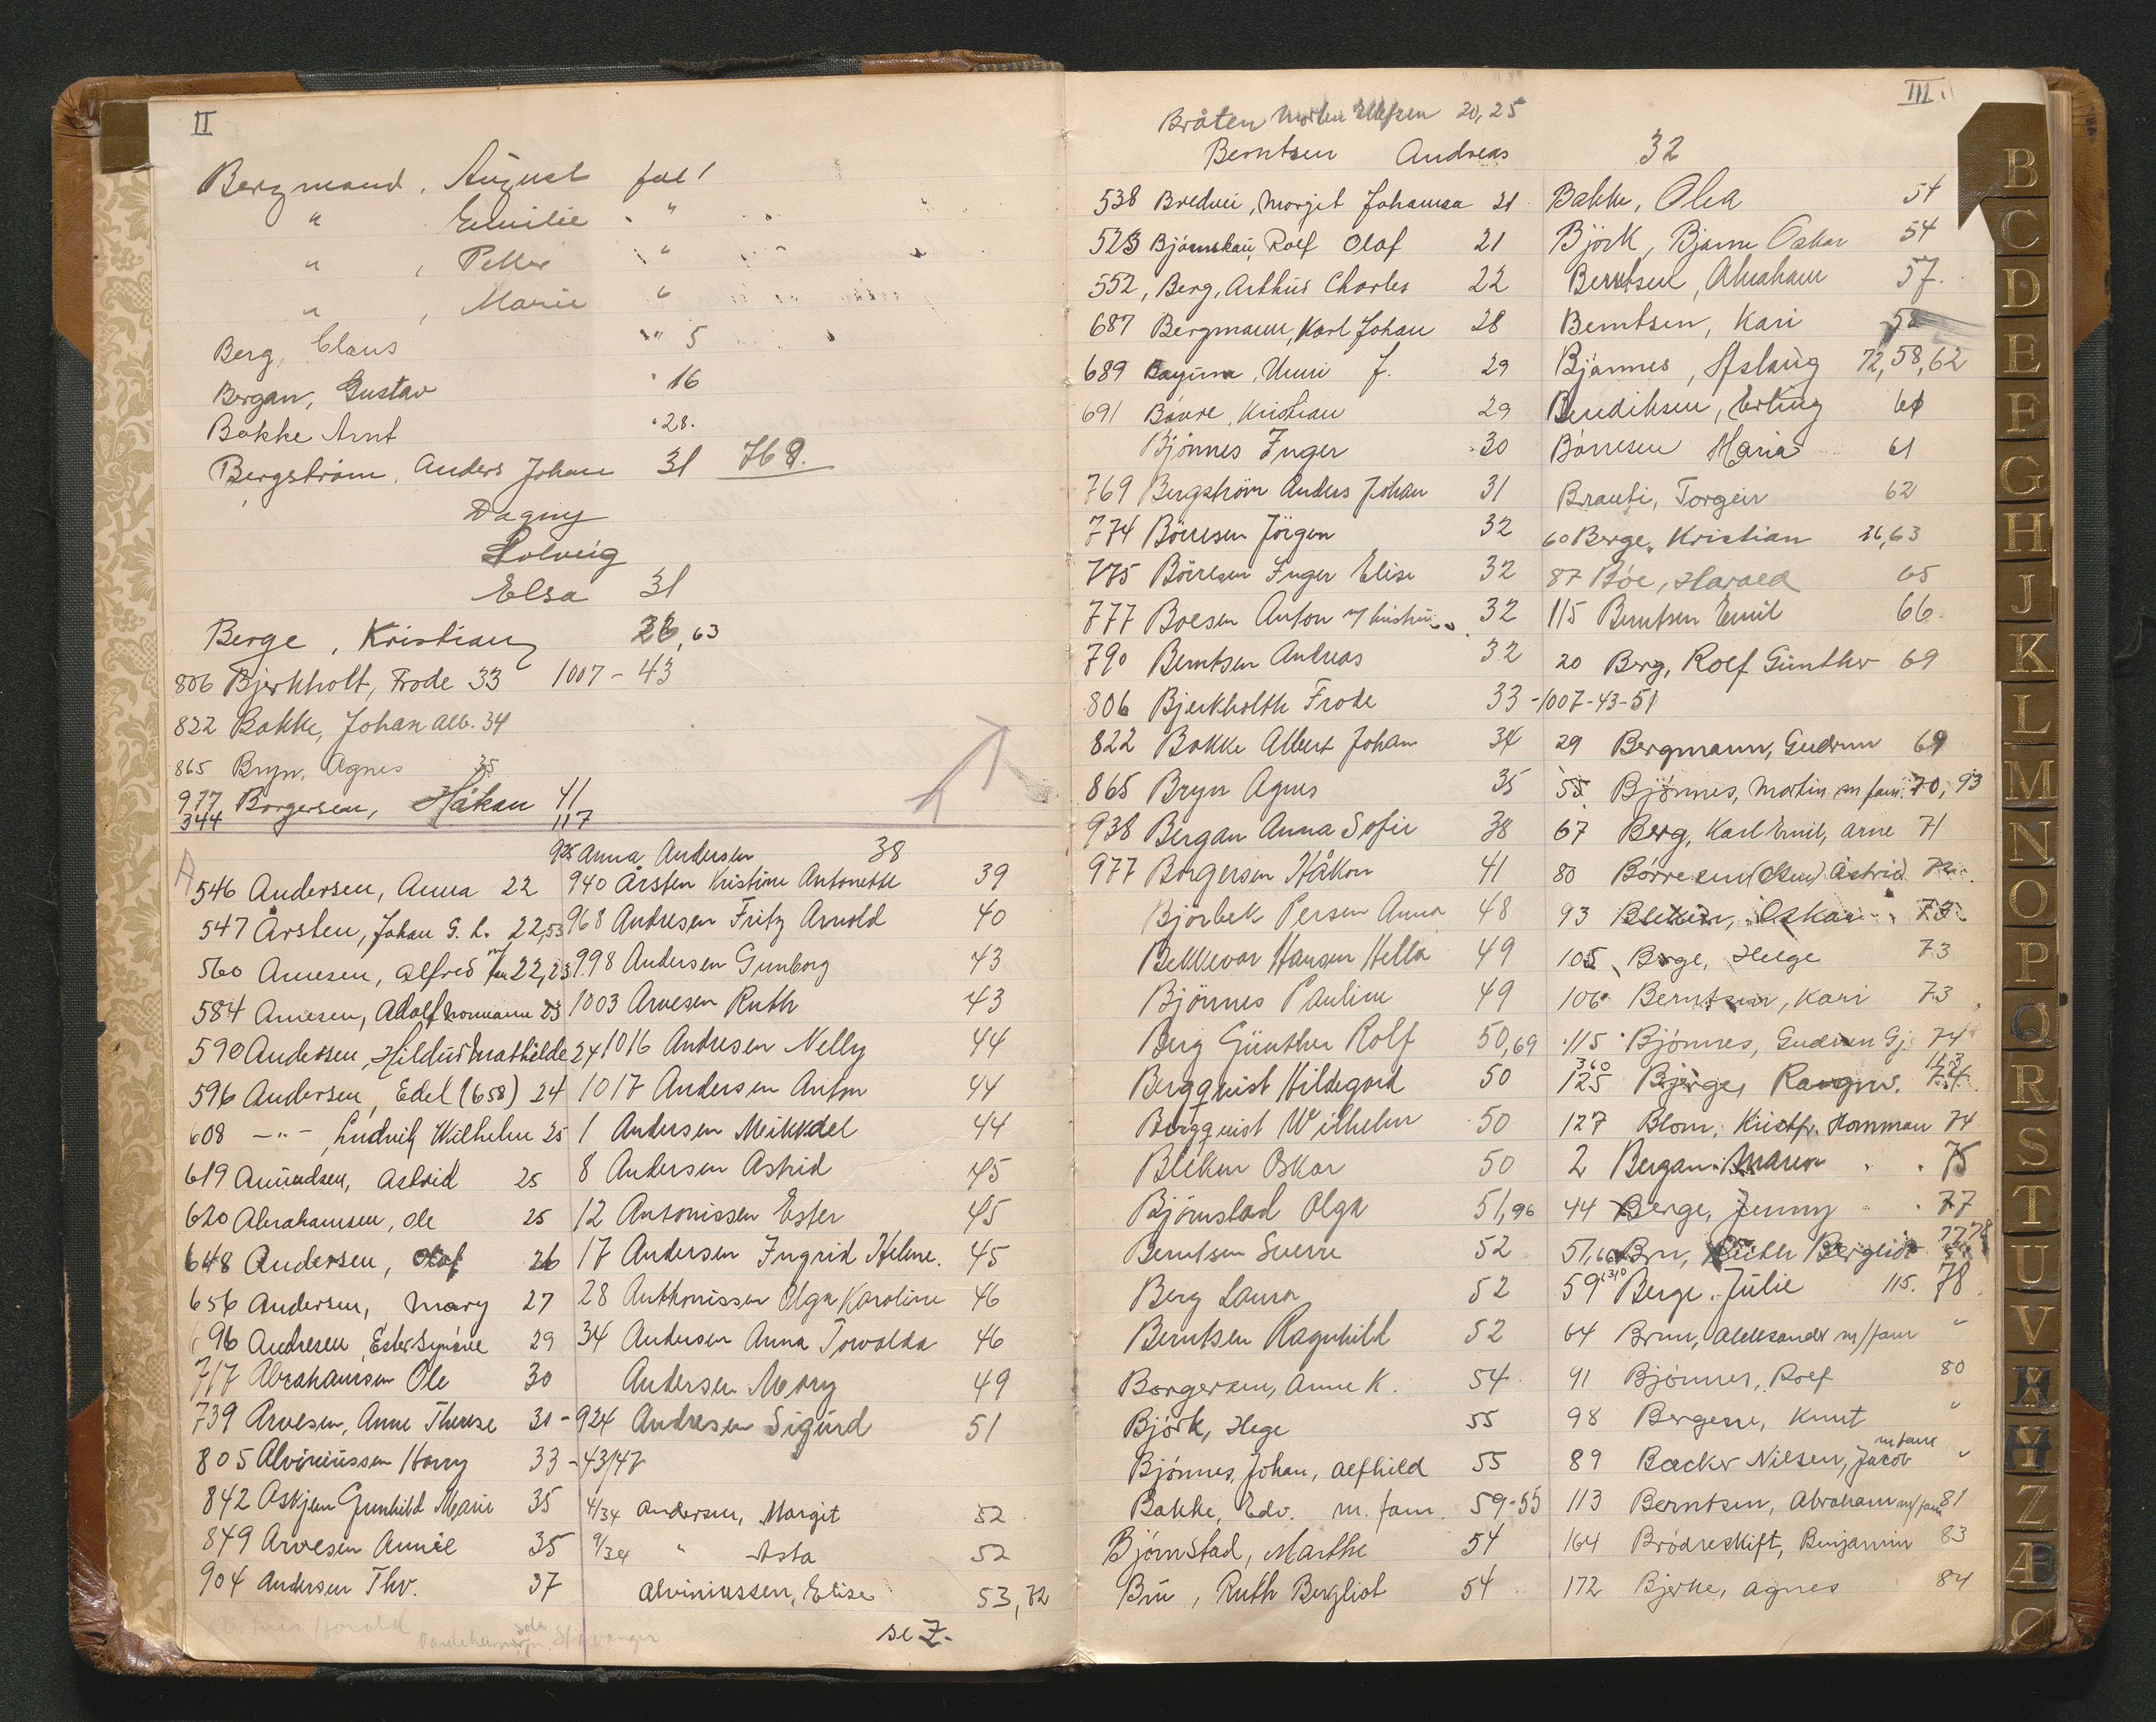 II
Bergmand, August fol 1
" Emilie "
" , Petter "
" , Marie "
Berg, Claus " 5
Bergan, Gustav " 16
Bakke Arnt " 28.
Bergström, Anders Johan 31 768.
Dagny
Solveig
Elsa 31
Berge, Kristian 26, 63
806 Bjerkholt, Frode 33 1007 - 43
822 Bakke, Johan Alb. 34
865 Bryn, Agnes 35
977 Borgersen, Håkan 41
344 117
A
546 Andersen, Anna 22
547 Årsten, Johan G. L. 22,53
560 Arnesen, Alfred 22,23
584 Arnesen, Adolf Normann 23
590 Andersen, Hildur Mathilde 24
596 Andersen, Edel (658) 24
608 -"- , Ludvik Wilhelm 25
619 Amundsen, Astrid 25
620 Abrahamsen, Ole 25
648 Andersen, Olaf 26
656 Andersen, Mary 27
696 Andresen, Ester Synöve 29
717 Abrahamsen Ole 30
739 Arvesen, Anne Therese 30 -
805 Alviniussen Harry 33 - 43/47
842 Askjem Gunhild Marie 35
849 Arvesen Annie 35
904 Andersen Thv. 37
925 Anna Andersen 38
940 Årsten Kristine Antonette 39
968 Andresen Fritz Arnold 40
998 Andersen Gunborg 43
1003 Arvesen Ruth 43
1016 Andresen Nelly 44
1017 Andersen Anton 44
1 Andersen Meikkdel 44
8 Andersen Astrid 45
12 Antonissen Ester 45
17 Andersen Ingrid Helene. 45
28 Anthonissen Olga Karoline 46
34 Andersen Anna Torvalda 46
Andersen Mary 49
924 Andresen Sigurd 51
4/34 Andersen, Margit 52
9/34 " Asta 52
Alviniussen, Elise 53, 72
Harald
Stavanger
se Z.
III.
Bråten Morten Ellefsen 20, 25
Berntsen Andreas 32
538 Bredvei, Margit Johanna 21
523 Björnskau, Rolf Olaf 21
552, Berg, Arthur Charles 22
687 Bergmann, Karl Johan 28
689 Unni J. 29
691 Kristian 29
Bjönnes Inger 30
769 Bergström Anders Johan 31
774 Börresen Jörgen 32
775 Börresen Inger Elise 32
777 Boesen Anton m/ hustru 32
790 Berntsen Andreas 32
806 Bjerkholth Frode 33 - 1007-43-51
822 Bakke Albert Johan 34
865 Bryn Agnes 35
938 Bergan Anna Sofie 38
977 Borgersen Håkon 41
Bjorbek Persen Anna 48
Bekkevar Hansen Hella 49
Bjönnes Pauline 49
Berg Günther Rolf 50,69
Bergquist Hildegard 50
Bergquist Wilhelm 50
Bleken Oskar 50
Björnstad Olga 51,96
Berntsen Sverre 52
Berg Laura 52
Berntsen Ragnhild 52
Borgersen, Anne K. 54
Björk, Hege 55
Bjönnes, Johan, Alfhild 55
Bakke, Edv. m. fam. 59-55
Björnstad, Marthe 54
Bru, Ruth Bergliot 54
Bakke, Olea 54
Björk, Bjarne Oskar 54
Berntsen, Abraham 57.
Berntsen, Kari 58
Bjönnes, Aslaug 72, 58, 62
Bendiksen, Erling 61
Börresen Maria 61
Brauti, Torgeir 62
60 Berge, Kristian 26,63
87 Böe, Harald 65
115 Berntsen Emil 66
20 Berg, Rolf Günther 69
29 Bergmann, Gudrun 69
55 Bjönnes, Martin m/fam. 70, 93
67 Berg, Karl Emil, Arne 71
80 Börresen (Olsen) Astrid 72
93 Bleken, Oskar 73
105 Berge, Helge 73
106 Berntsen, Kari 73
115 Bjönnes, Gudrun Gj. 74
360 113
125 Bjerge, Ragnv. 74
127 Blom, Kristfr. Homman 74
2 Bergan Maren 75
44 Berge, Jenny 77
57,66 Bru, Ruth Bergliot 77 78
59 1310 Berge, Julie 115. 78
64 Brun, Aleksander m/fam "
91 Bjönnes, Rolf 80
98 Bergene, Knut "
89 Backer Nilsen, Jacob m fam "
113 Berntsen, Abraham m/fam 81
164 Brödreskift, Benjamin 83
172 Bjerke, Agnes 84
B
C
D
E
F
G
H
J
K
L
M
N
O
P
Q
R
S
T
U
V
X
Y
Z
Æ
Ø